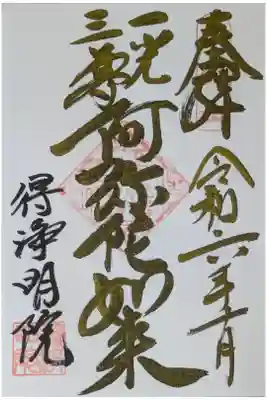 奉拝
令和六年十一月
一光
三尊
阿弥陀如来
得浄明院